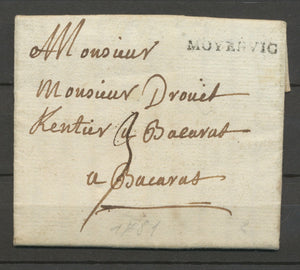 MOYENVIC
Monsieur
Monsieur Drouet
Rentier a Bacarat
3
a Bacarat
1781